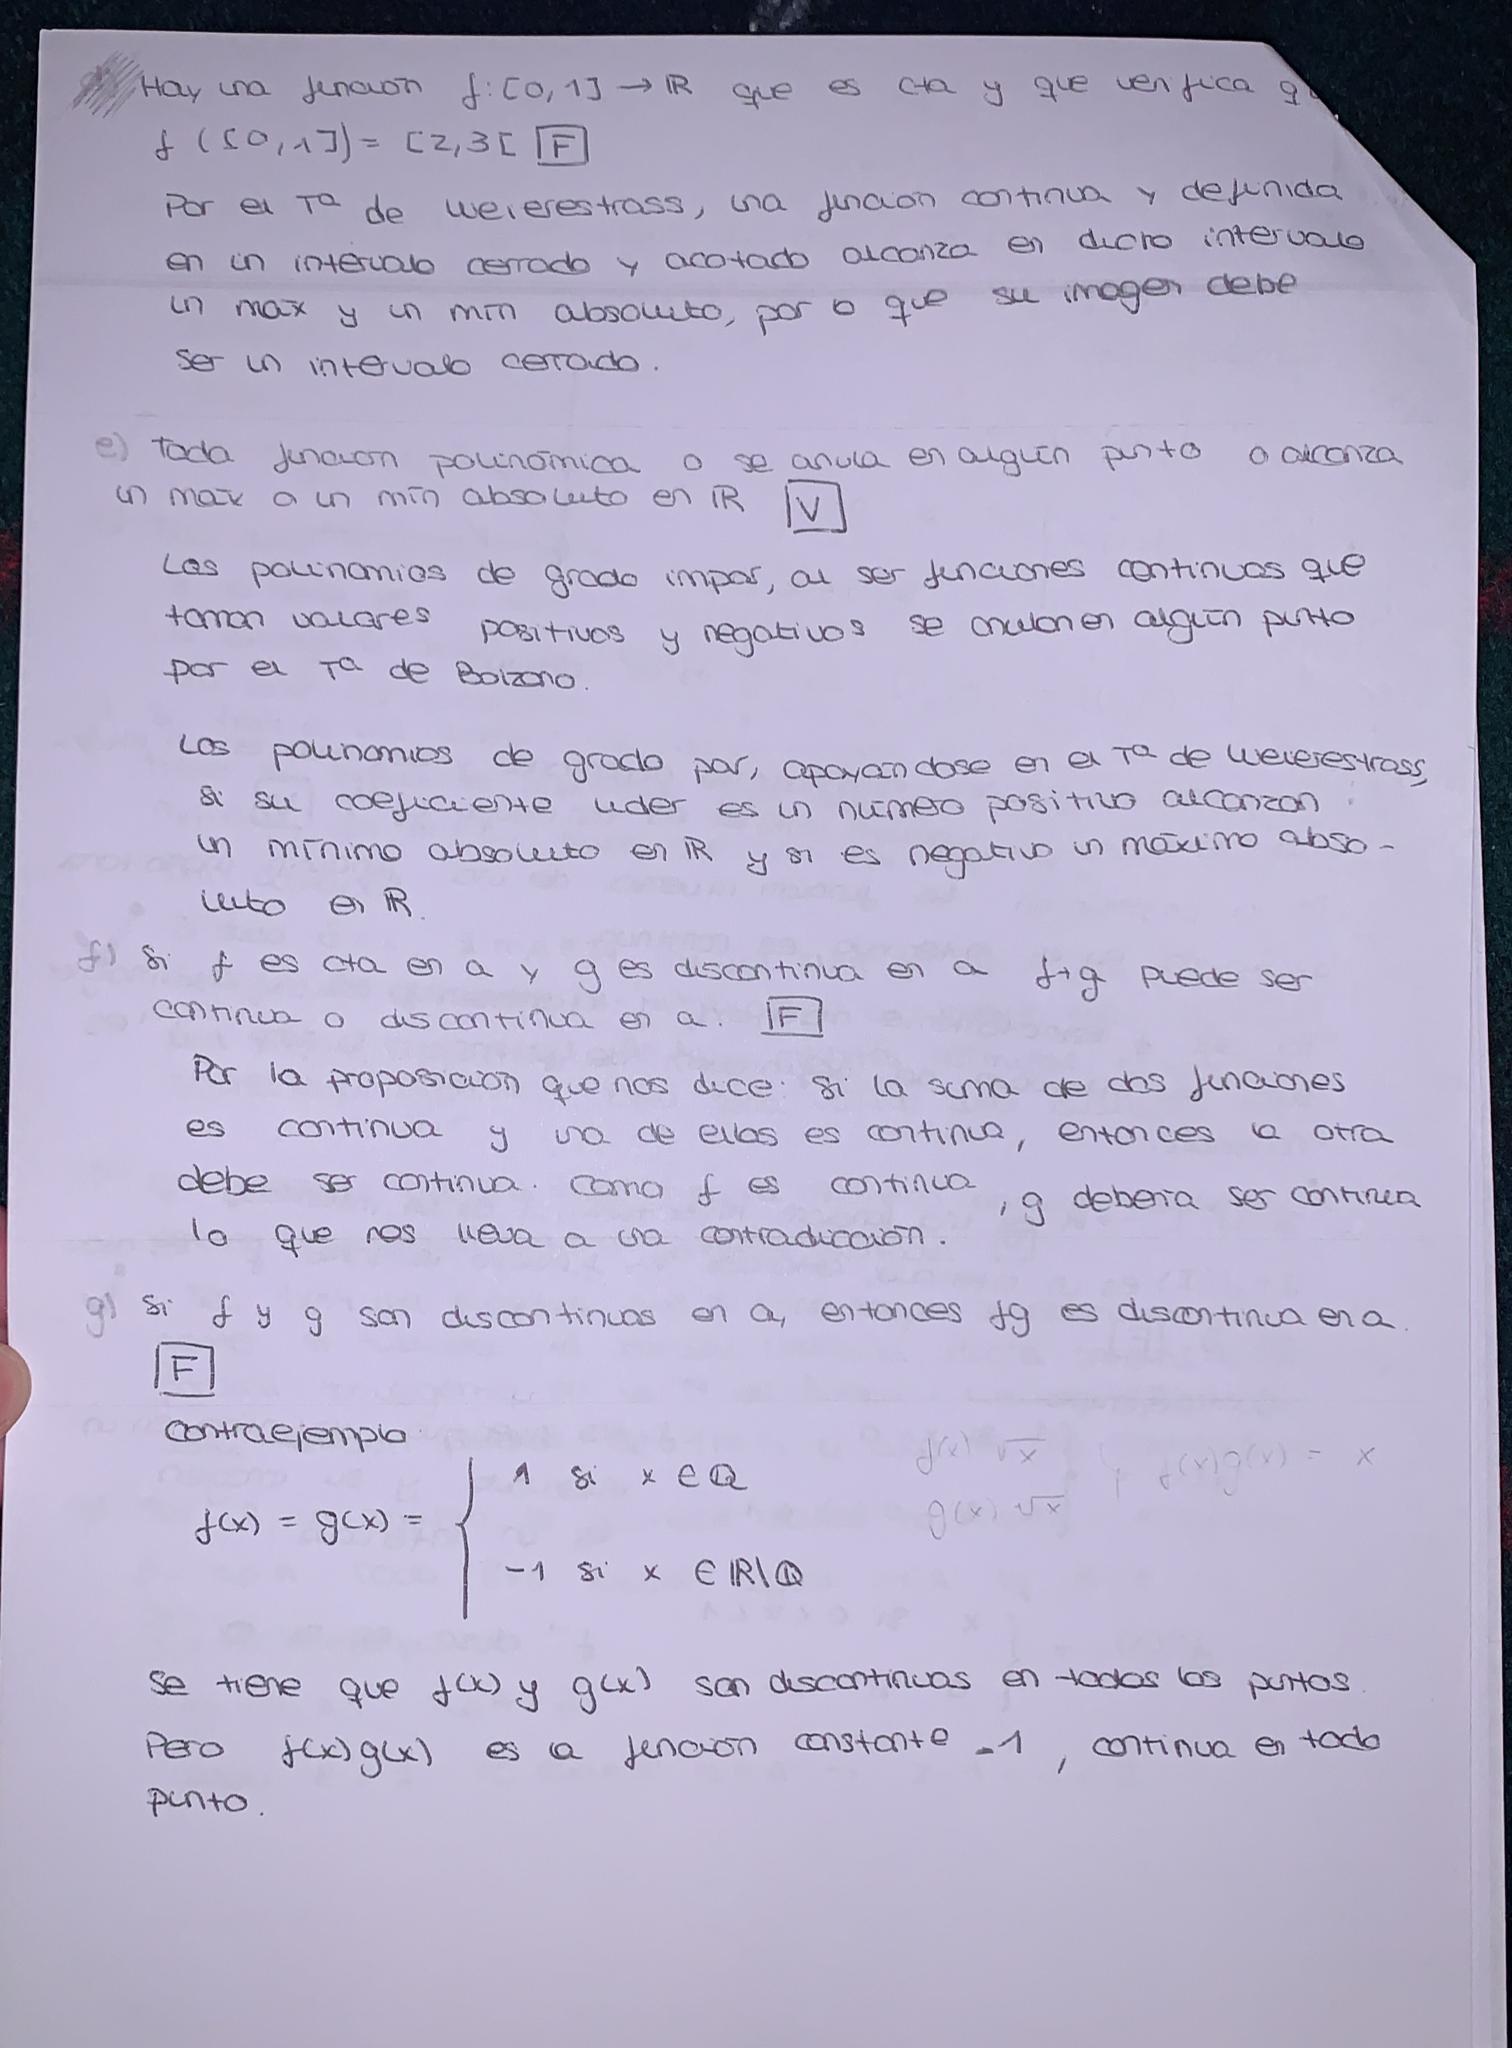 Hay una función f: [0,1] → ℝ que es cta y que verifica
f ([0,1]) = [2,3[ F
Por el Tª de Weierestrass, una función continua y definida
en un intervalo cerrado y acotado alcanza en dicho intervalo
un máx y un mín absoluto, por lo que su imagen debe
ser un intervalo cerrado.
e) Toda función polinómica o se anula en algún punto o alcanza
un máx o un mín absoluto en ℝ V
Los polinomios de grado impar, al ser funciones continuas que
toman valores positivos y negativos se anulan en algún punto
por el Tª de Bolzano.
Los polinomios de grado par, apoyandose en el Tª de Weierestrass,
si su coeficiente lider es un número positivo alcanzan
un mínimo absoluto en ℝ y si es negativo un máximo abso-
luto en ℝ.
f) Si f es cta en a y g es discontinua en a f+g puede ser
continua o discontinua en a. F
Por la proposición que nos dice: si la suma de dos funciones
es continua y una de ellas es continua, entonces la otra
debe ser continua. Como f es continua, g debería ser continua
lo que nos lleva a una contradicción.
g) Si f y g son discontinuas en a, entonces fg es discontinua en a.
F
Contraejemplo:
f(x) √x ; f(x)g(x) = x
g(x) √x
1 si x ∈ ℚ
f(x) = g(x) = {
-1 si x ∈ ℝ\ℚ
Se tiene que f(x) y g(x) son discontinuas en todos los puntos.
Pero f(x)g(x) es la función constante -1, continua en todo
punto.